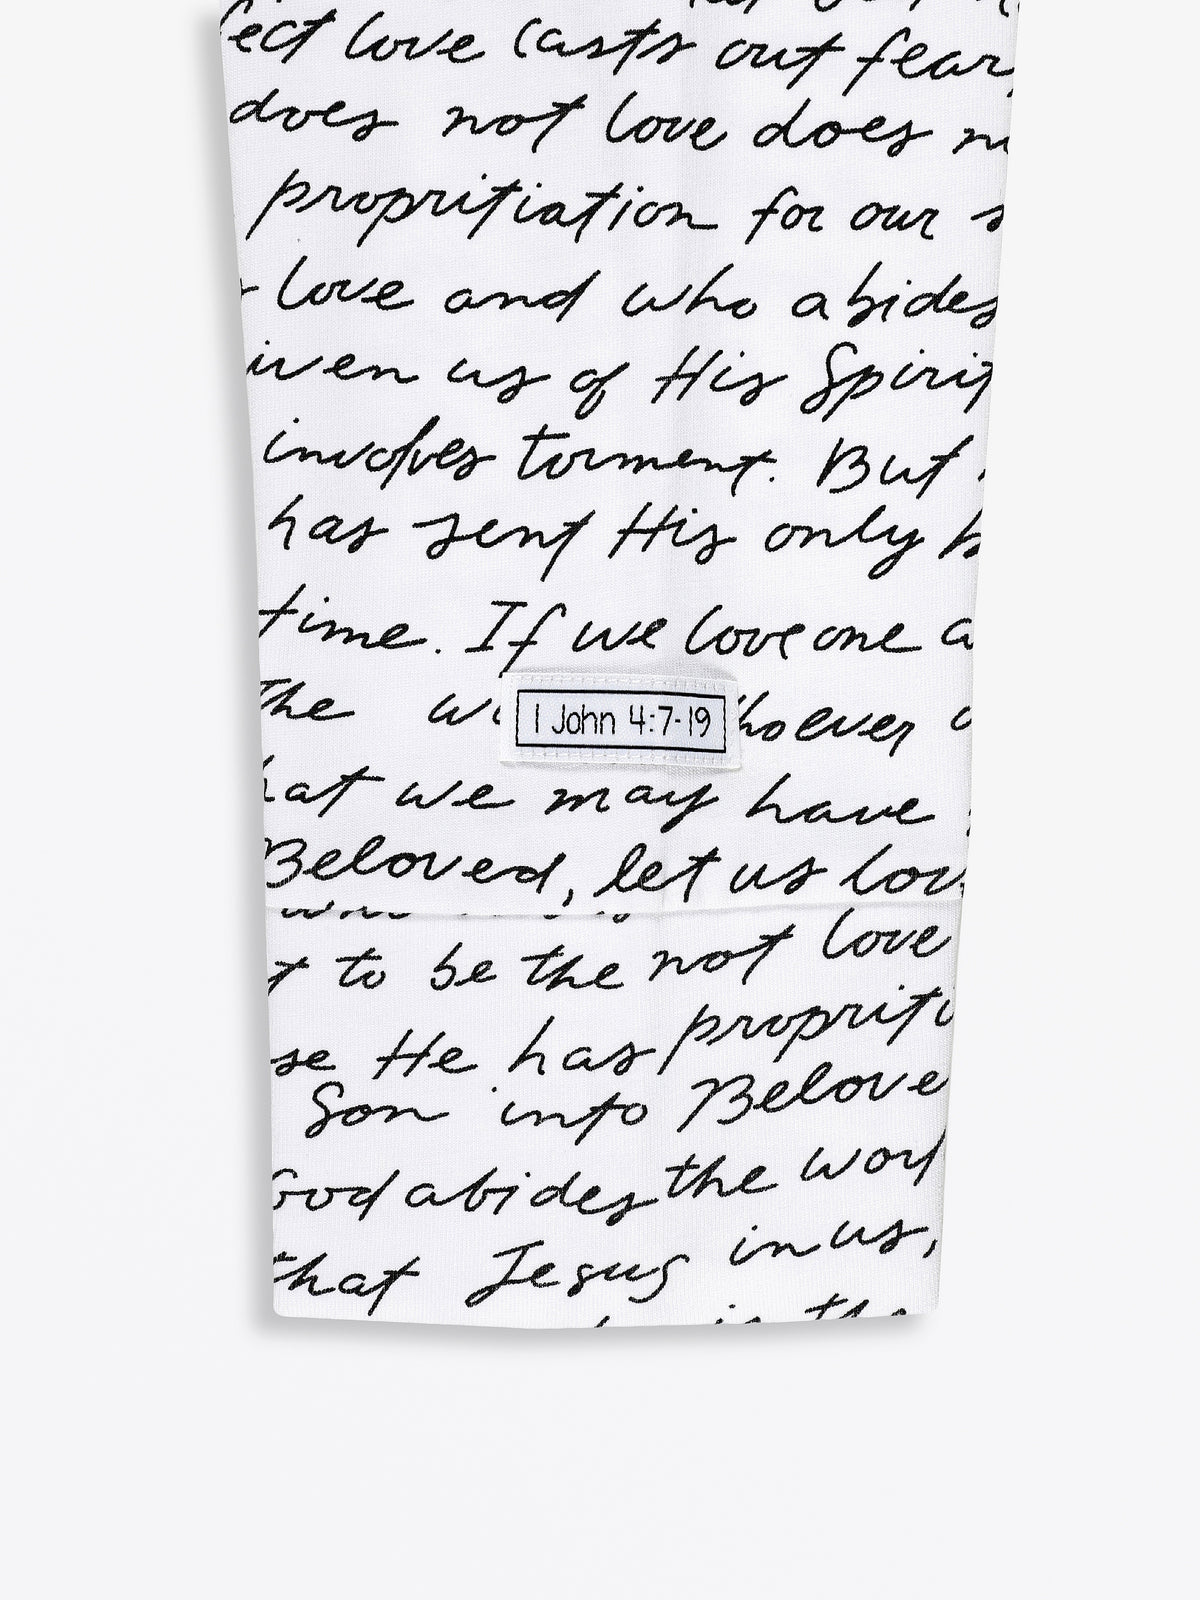 love casts out fear,
does not love does
propritiation for our
love and who abides
us of His Spirit
involves torment. But
has sent His only
time. If we love one
the
1 John 4:7-19
we may have
Beloved, let us
to be the not love
He has
Son into
abides the
that Jesus in us,